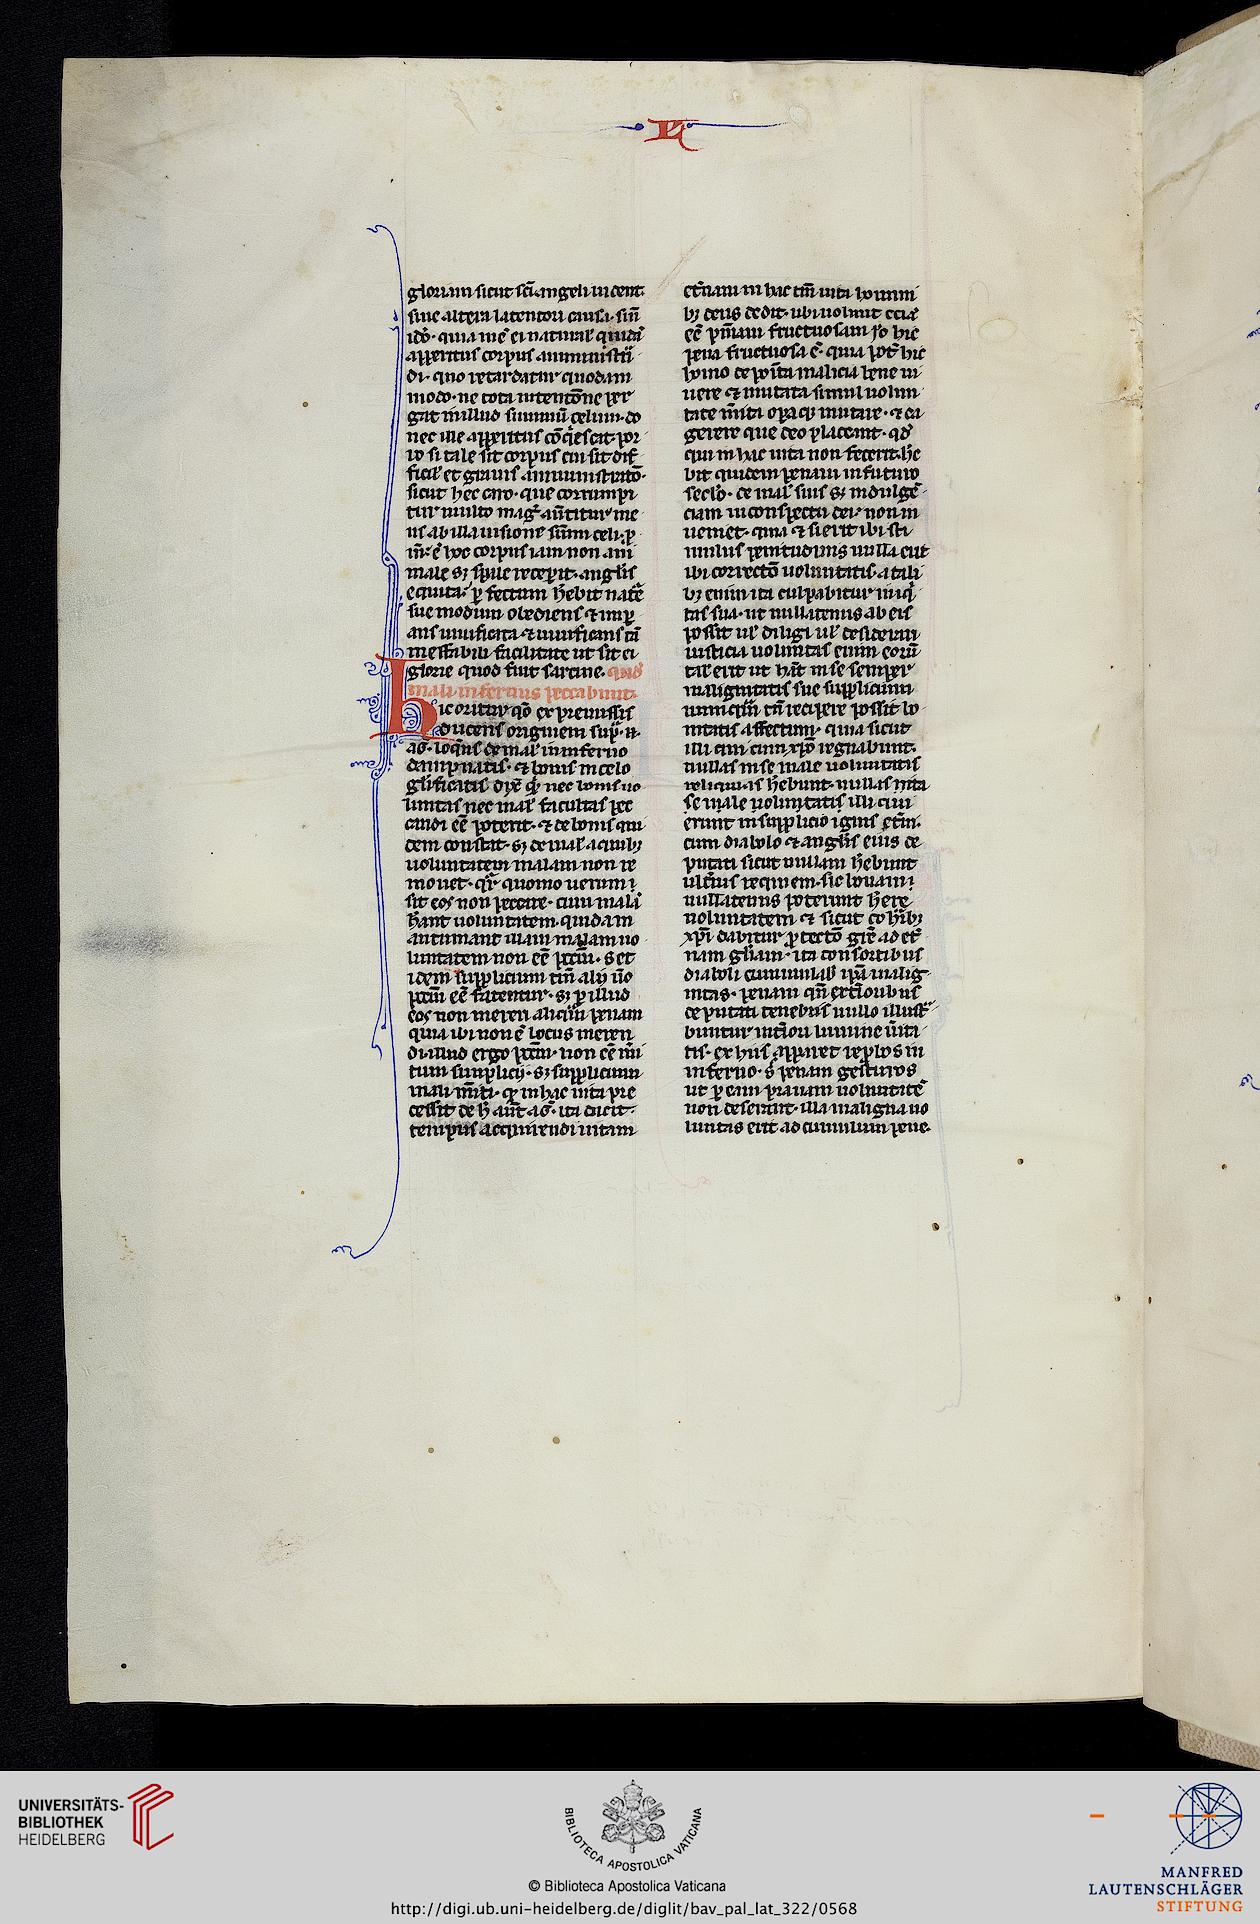 L
gloriam sicut sc̄i angeli uident.
siue altera latentiori causa. siue
ido. quia inē ei natural̄ quidā
appetitus corpus aministrā
di. quo retardatur quodam
modo. ne tota intentōne per
gat in illud summū celum. do
nec ille appetitus cōq̄escat. por
ro si tale sit corpus cui sit dif
ficil̄ et grauis aministratō.
sicut hec caro. que corrumpi
tur multo maḡ aūtitur me
ns ab illa uisione sūmi celi. ꝓ
male sꝫ spūale receperit. angl̄is
equata. ꝑfectum h̄ebit nat̄e
sue modum obediens ⁊ imꝑ
ans uiuificata ⁊ uiuificans tā
ineffabili facilitate ut sit ei
glorie quod fuit sarcine. quid
mali in fernus peccabunt.
Hic oritur qō ex premissis
ducens originem supͣ. n.
ag. loq̄ns de mal̄ in inferno
dampnatis. ⁊ bonis in celo
gl̄ificatis dixē qꝫ nec bonis uo
luntas nec mal̄ facultas pec
candi eē poterit. ⁊ de bonis qui
dem constat. sꝫ de mal̄ a quibꝫ
uoluntatem malam non re
mouet. qr̄ quomo uerum
sit eos non peccare. cum malā
hant uoluntatem. quidam
autumant illam malam uo
luntatem non eē pctm̄. set
idem supplicium tm̄ alij u̅o
pctm̄ eē fatentur. sꝫ ꝑ illud
eos non mereri aliquā penam
quia ibi non ē locus meren
di. illud ergo pctm̄. non eē m̄i
tum supplicij. sꝫ supplicium
mali m̄iti. qꝫ in hac uita pre
cessit de h̄ aut̄ ag̅. ita dicit.
tempus acquirendi uitam
et̄nam in hac tm̄ uita homini
bꝫ deus dedit. ubi uoluit ec̄iā
eē pn̄iam fructuosam io hic
penia fructuosa ē. quia pōt hic
homo deposita malicia bene ui
uere ⁊ mutata simul uolun
tate m̄ita oꝑaqꝫ mutare. ⁊ ea
gerere que deo placeant. qd̄
qui in hac uita non fecerit. h̄e
bit quidem penam in futuro
sec̄lo. de mal̄ suis sꝫ indulgē
ciam in conspectu dei non in
ueniet. quia ⁊ si erit ibi sti
mulus penitudinis nulla erit
ibi correctō uoluntatis. a tali
bꝫ enim ita culpabitur iniq̄
tas sua. ut nullatenus ab eis
possit ul̄ diligi ul̄ desiderari
iusticia uoluntas enim eorū
tal̄ erit ut h̄at in se semper
malignitatis sue supplicium
nunquā tn̄ recipere possit bo
nitatis affectum. quia sicut
illi qui cum xp̄o regnabunt.
nullas in se male uoluntatis
reliquias h̄ebunt. nullas ita
se male uoluntatis illi qui
erunt in supplicio ignis et̄ni.
cum diabolo ⁊ angl̄is eius de
putati sicut nullam h̄ebunt
ult̄ius requiem. sic bonam
nullatenus poterunt h̄ere
uoluntatem ⁊ sicut co h̄ibꝫ
xp̄i dabitur ꝑfectō gr̄e ad et̄
nam gl̄iam. ita consortibus
diaboli cumulab̄ ip̄a malig
nitas. penam qn̄ ext̄ioribus
deputati tenebris nullo illust̄
buntur int̄iori lumine ūita
tis. ex hiis apparet replos in
inferno. s̄ penam gesturos
ut ꝑ eam prauam uoluntatē
non deserant. illa maligna uo
luntas erit ad cumulum pene.
UNIVERSITÄTS-
BIBLIOTHEK
HEIDELBERG
BIBLIOTECA APOSTOLICA VATICANA
© Biblioteca Apostolica Vaticana
http://digi.ub.uni-heidelberg.de/diglit/bav_pal_lat_322/0568
MANFRED
LAUTENSCHLÄGER
STIFTUNG